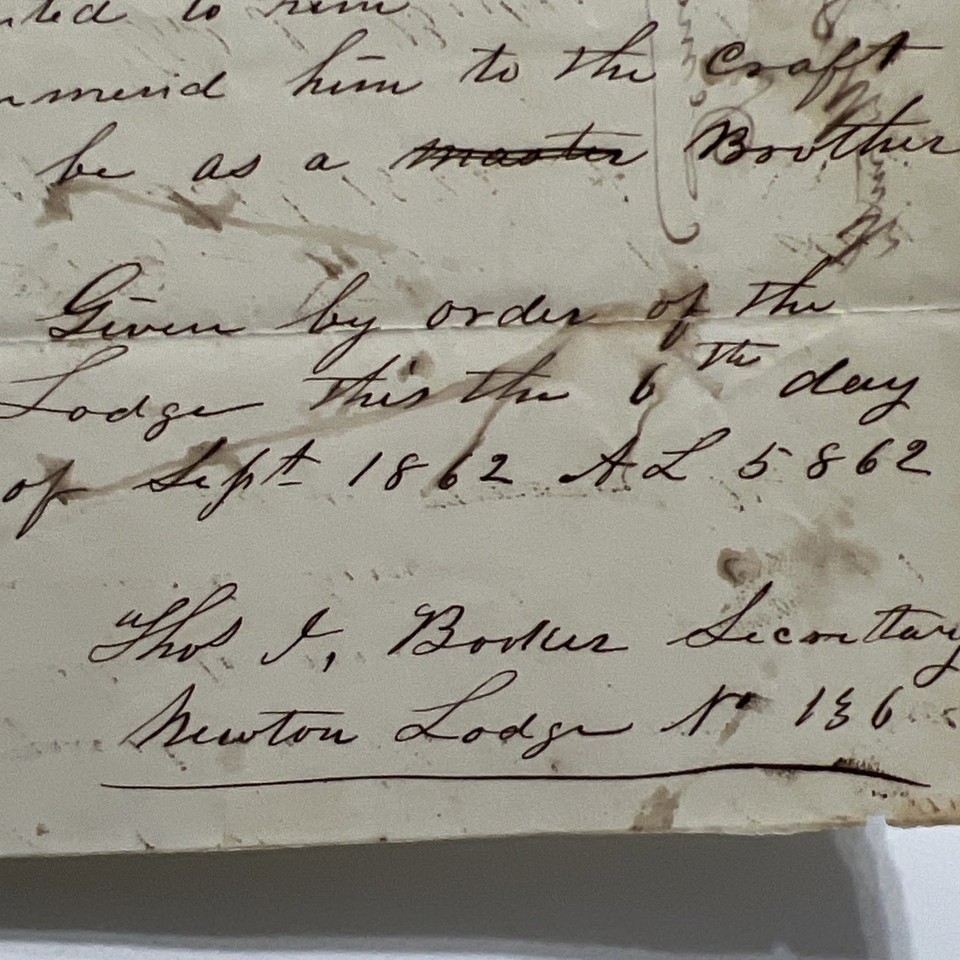 to him
him to the Craft
be as a ~~master~~ Brother
Given by order of the
Lodge this the 6th day
of Sept 1862 A L 5862
Thos J, Booker Secretary
Newton Lodge No 136